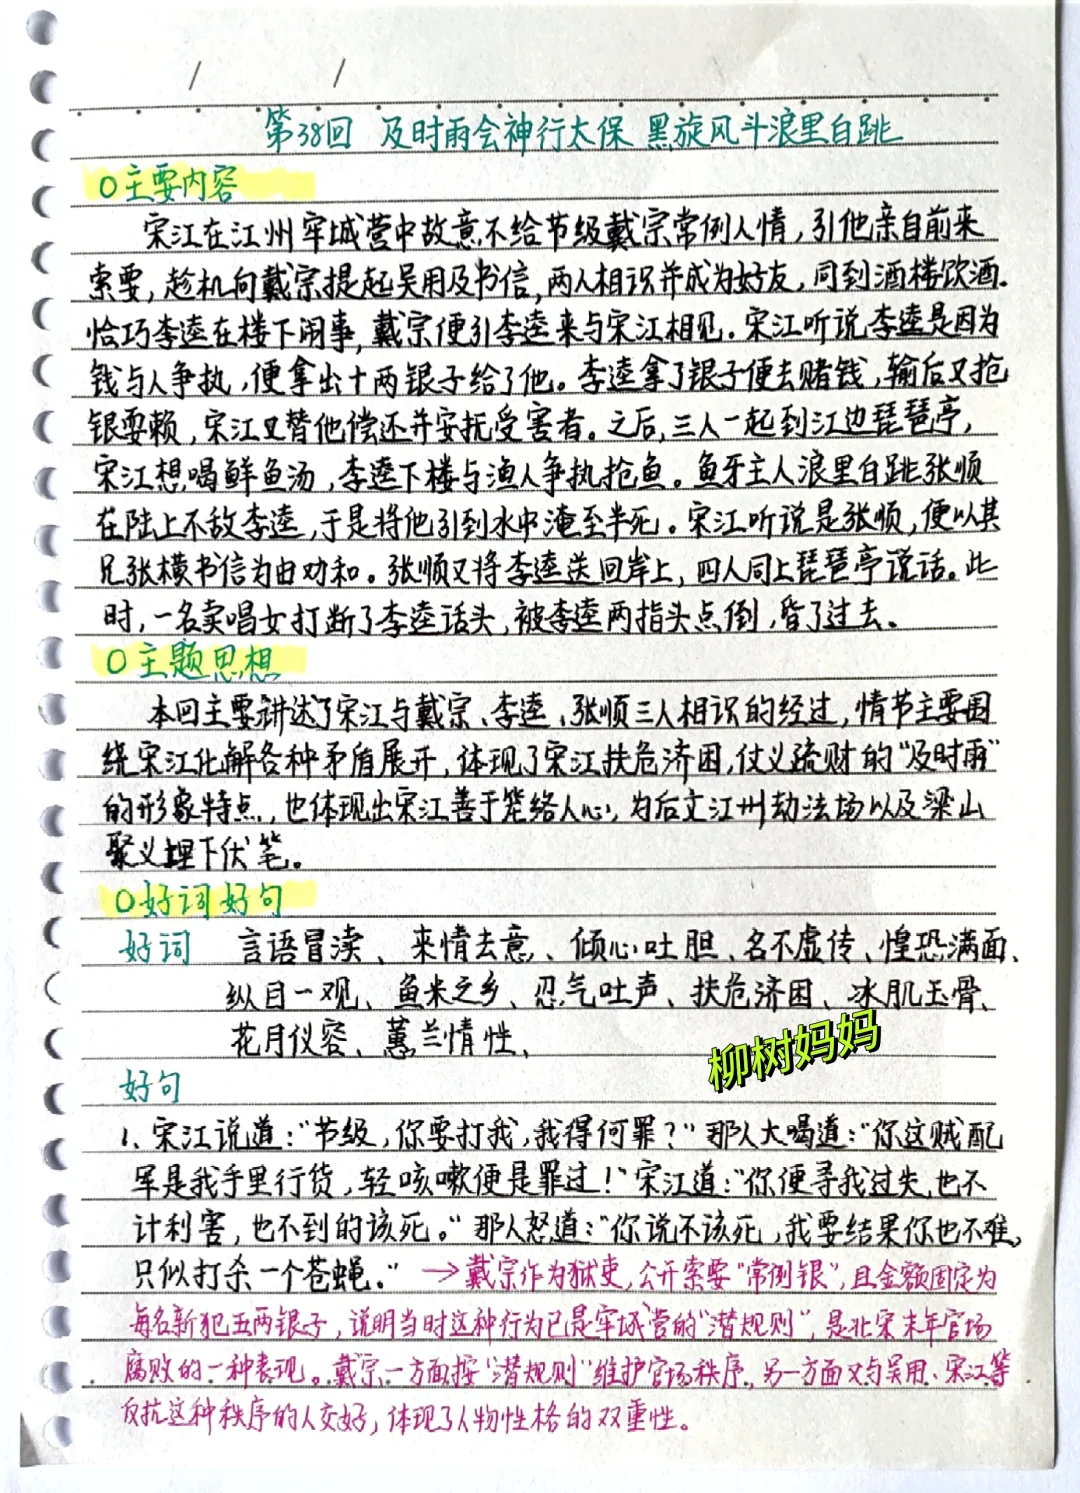 第38回 及时雨会神行太保 黑旋风斗浪里白跳
○主要内容
宋江在江州牢城营中故意不给节级戴宗常例人情，引他亲自前来
索要，趁机向戴宗提起吴用及书信，两人相识并成为好友，同到酒楼饮酒.
恰巧李逵在楼下闹事，戴宗便引李逵来与宋江相见．宋江听说李逵是因为
钱与人争执，便拿出十两银子给了他。李逵拿了银子便去赌钱，输后又抢
银耍赖，宋江又替他偿还并安抚受害者。之后，三人一起到江边琵琶亭，
宋江想喝鲜鱼汤，李逵下楼与渔人争执抢鱼。鱼牙主人浪里白跳张顺
在陆上不敌李逵，于是将他引到水中淹至半死。宋江听说是张顺，便以其
兄张横书信为由劝和。张顺又将李逵送回岸上，四人同上琵琶亭说话。此
时，一名卖唱女打断了李逵话头，被李逵两指头点倒，昏了过去。
○主题思想
本回主要讲述了宋江与戴宗、李逵、张顺三人相识的经过，情节主要围
绕宋江化解各种矛盾展开，体现了宋江扶危济困，仗义疏财的“及时雨”
的形象特点，也体现出宋江善于笼络人心，为后文江州劫法场以及梁山
聚义埋下伏笔。
○好词好句
好词 言语冒渎、来情去意、倾心吐胆、名不虚传、惶恐满面、
纵目一观、鱼米之乡、忍气吐声、扶危济困、冰肌玉骨、
花月仪容、蕙兰情性、
柳树妈妈
好句
1、宋江说道：“节级，你要打我，我得何罪？”那人大喝道：“你这贼配
军是我手里行货，轻咳嗽便是罪过！”宋江道：“你便寻我过失，也不
计利害，也不到的该死。”那人怒道：“你说不该死，我要结果你也不难，
只似打杀一个苍蝇。”→戴宗作为狱吏，公开索要“常例银”，且金额固定为
每名新犯五两银子，说明当时这种行为已是牢城营的“潜规则”，是北宋末年官场
腐败的一种表现。戴宗一方面按“潜规则”维护官场秩序，另一方面又与吴用、宋江等
反抗这种秩序的人交好，体现了人物性格的双重性。